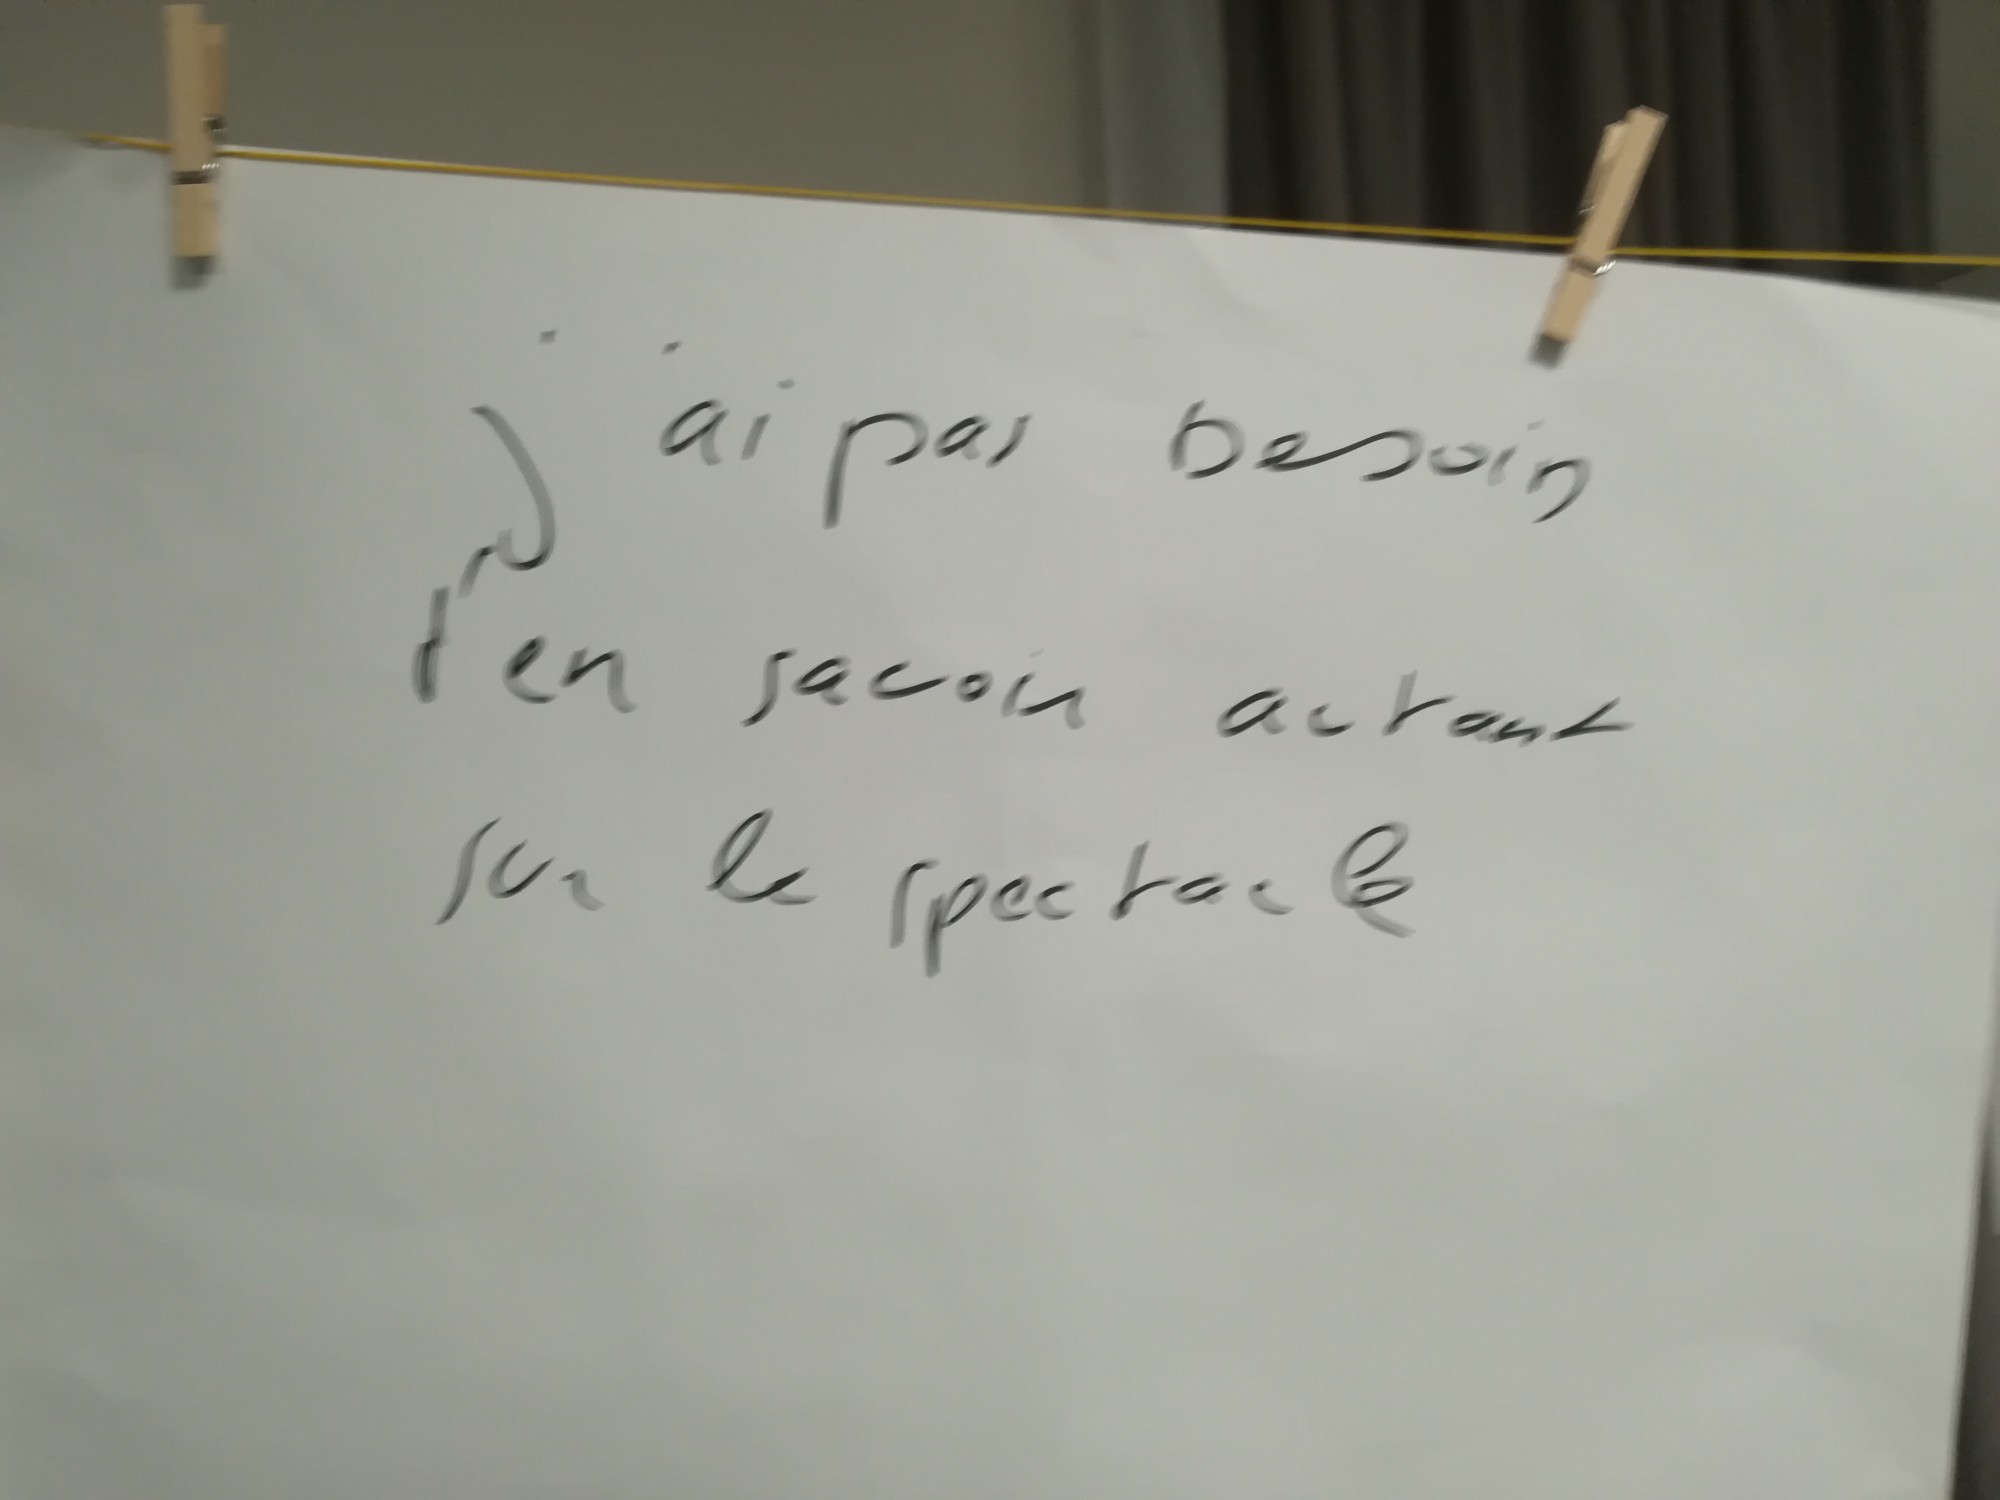 j'ai pas besoin
d'en savoir autant
sur le spectacle